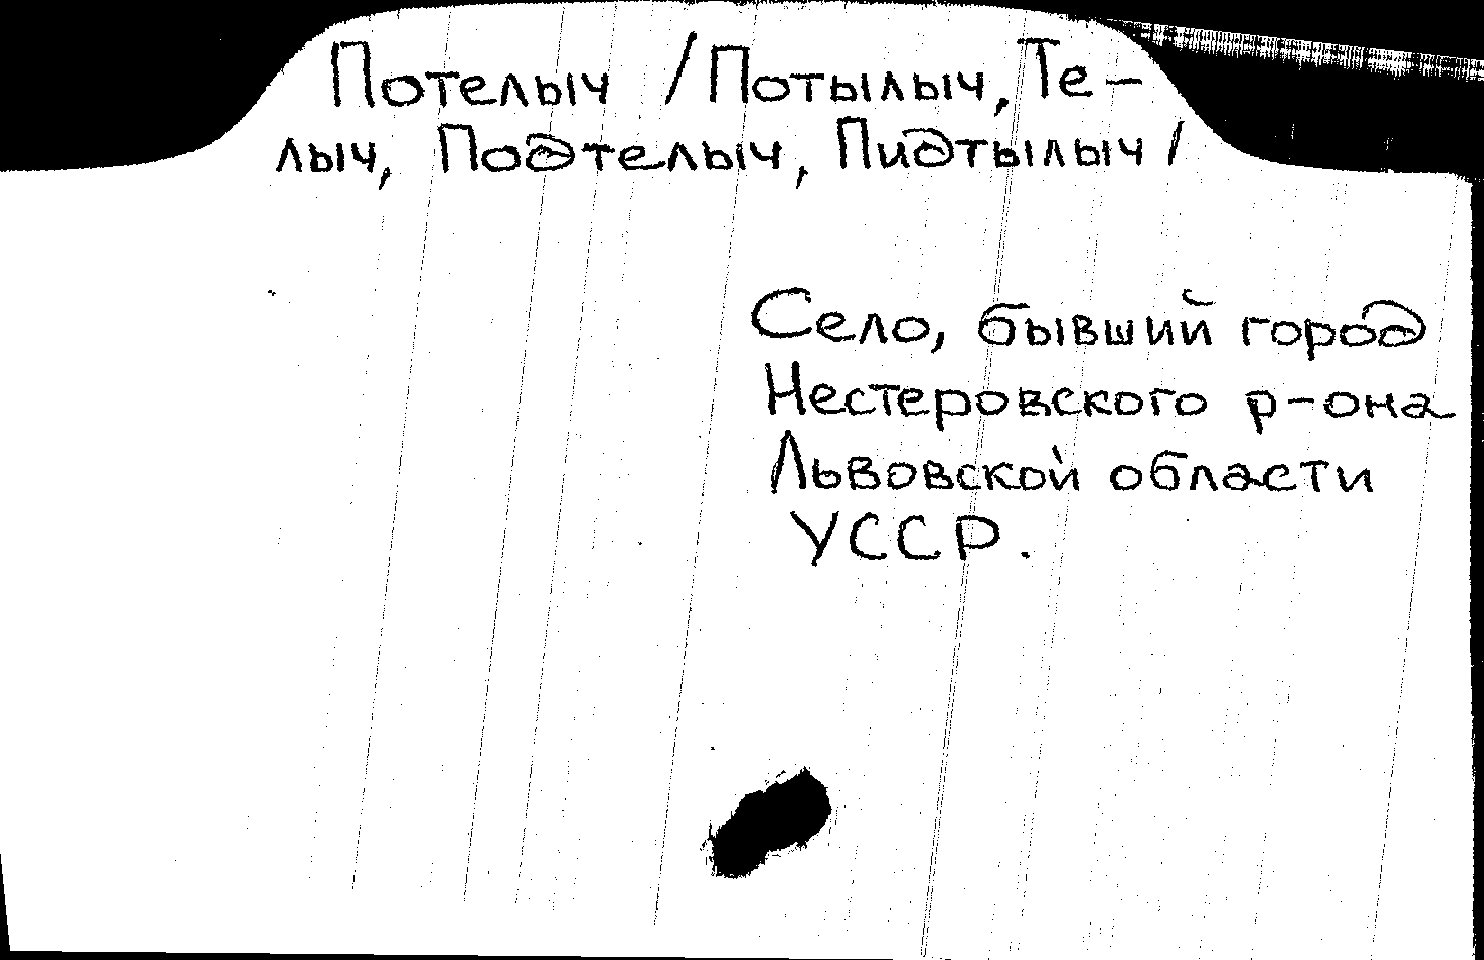 Потелыч /Потылыч, Те-
лыч, Подтелыч, Пидтылыч/
Село, бывший город
Нестеровского р-она
Львовской области
УССР.